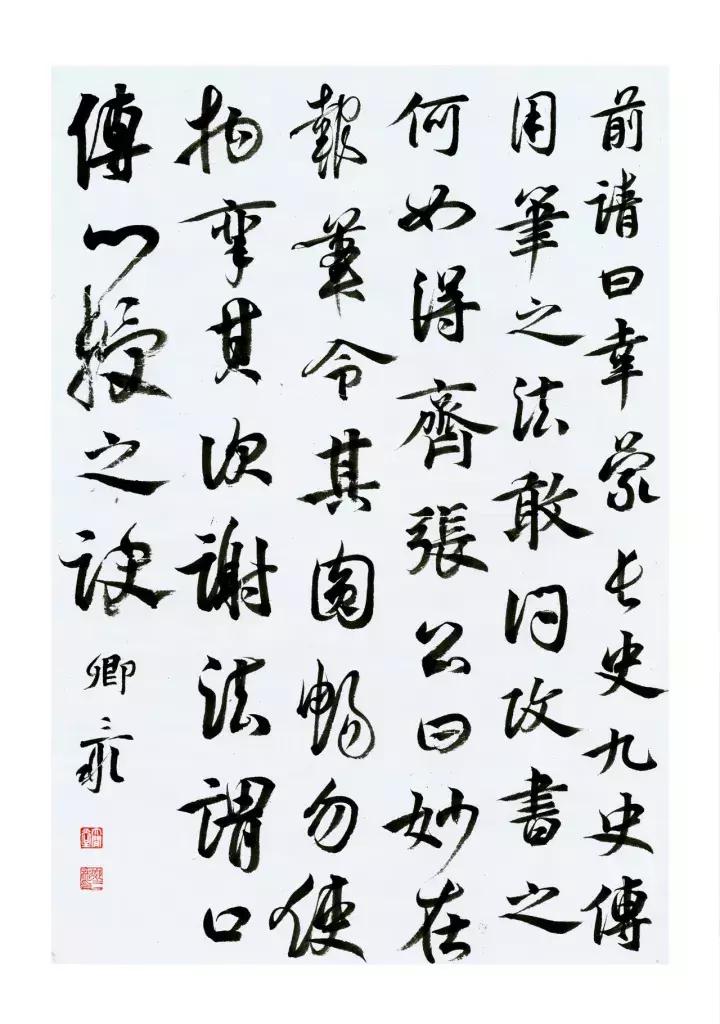 前請曰幸蒙長史九史傳
用筆之法敢問攻書之
何如得齊張公曰妙在
執筆令其圓暢勿使
拘攣其次謝法謂口
傳以授之訣
卿